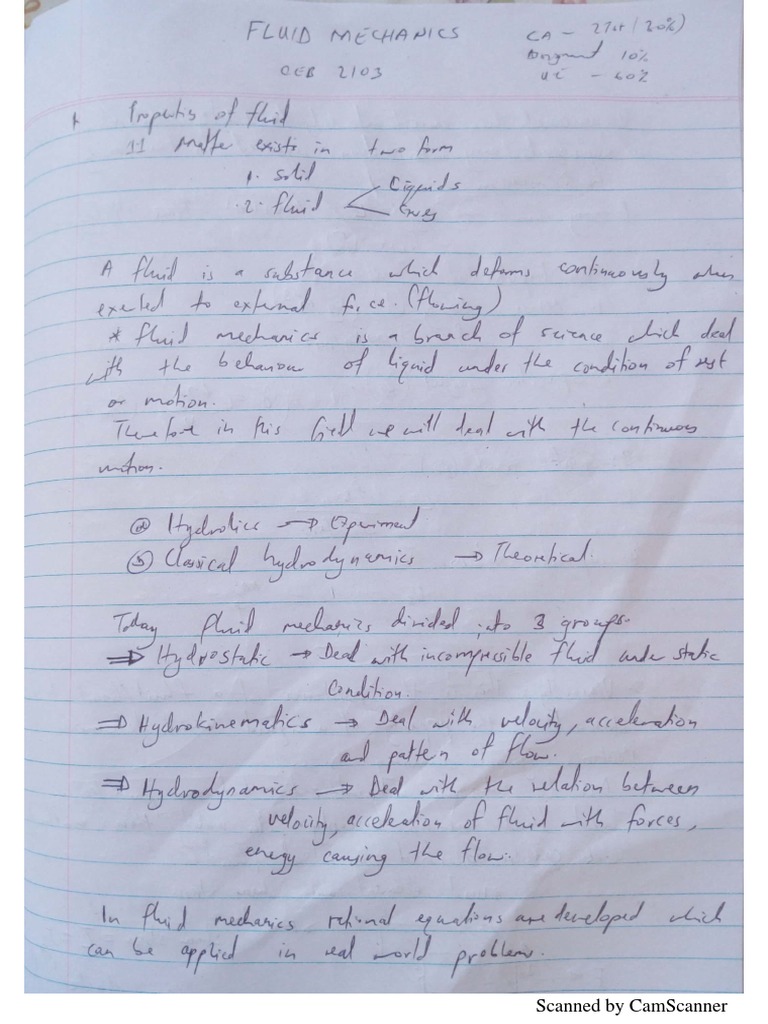 FLUID MECHANICS
CA - 2Tst (30%)
CEB 2103
Assignment 10%
UE - 60%
Properties of fluid
1.1 Matter exists in two form
1. Solid
2. fluid
Liquids
Gases
A fluid is a substance which deforms continuously when
exerted to external force. (flowing)
* fluid mechanics is a branch of science which deal
with the behaviour of liquid under the condition of rest
or motion.
Therefore in this field we will deal with the continuous
motion.
ⓐ Hydrolics → Experiment
ⓑ Classical hydrodynamics → Theoretical.
Today fluid mechanics divided into 3 groups.
⇒ Hydrostatic → Deal with incompressible fluid under static
Condition.
⇒ Hydrokinematics → Deal with velocity, acceleration
and pattern of flow.
⇒ Hydrodynamics → Deal with the relation between
velocity, acceleration of fluid with forces,
energy causing the flow.
In fluid mechanics rational equations are developed which
can be applied in real world problems.
Scanned by CamScanner